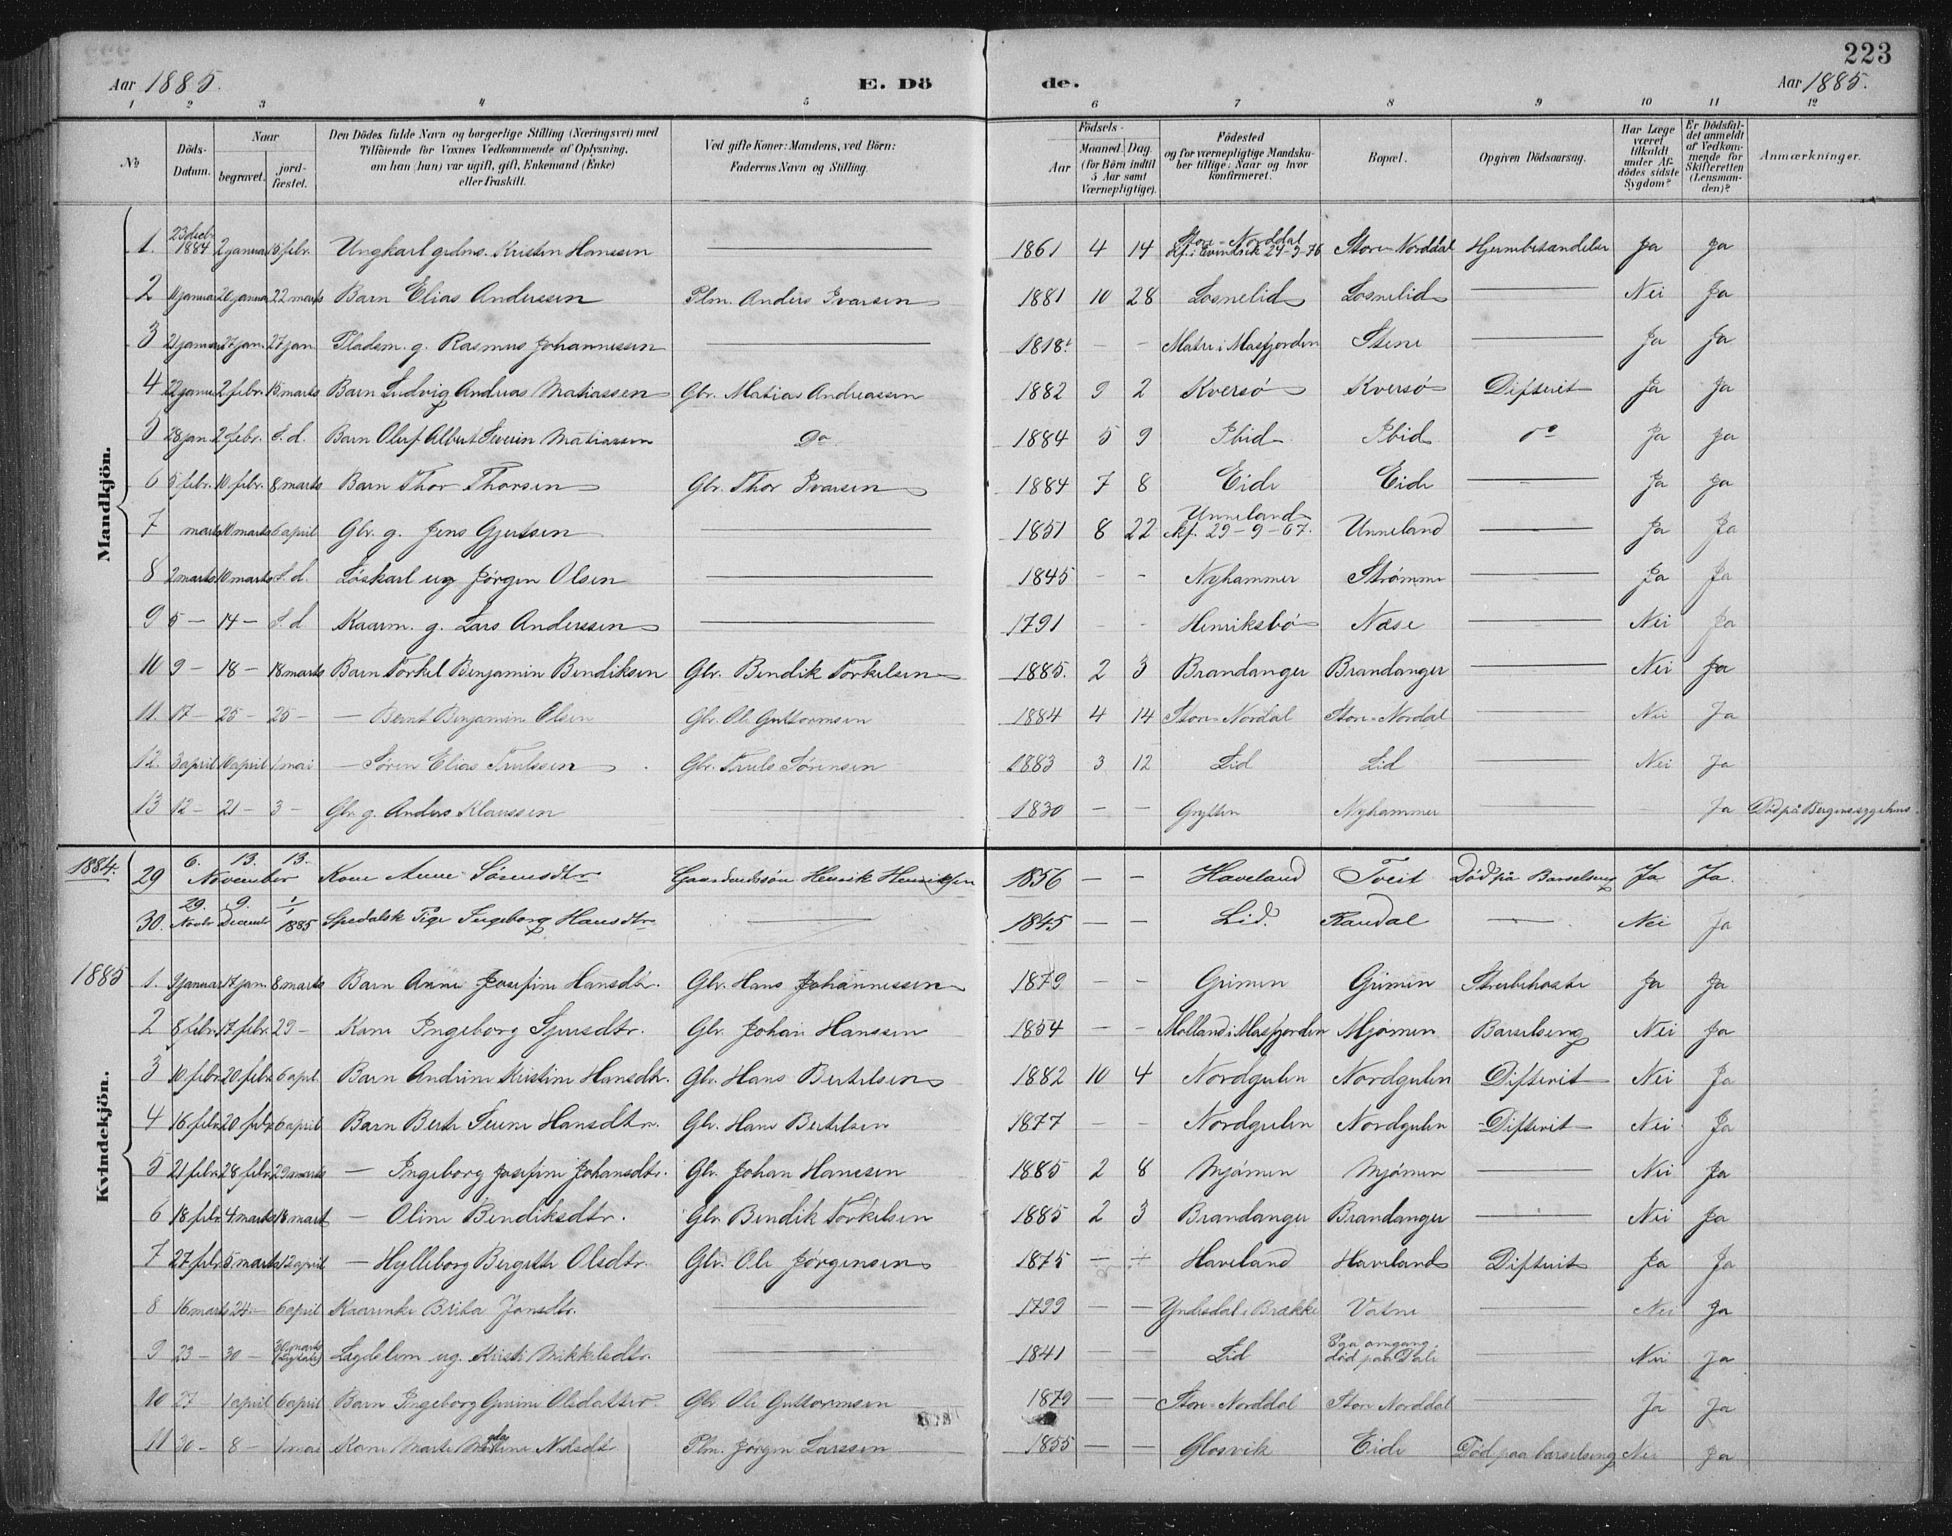 223
Aar 1885. E. Dö de. Aar 1885.
1 2 3 4 5 6 7 8 9 10 11 12
No Döds-Datum. Naar begravet. jord-fæstet. Den Dödes fulde Navn og borgerlige Stilling (Næringsvei) med Tilföiende for Voxnes Vedkommende af Oplysning, om han (hun) var ugift, gift, Enkemand (Enke) eller fraskilt. Ved gifte Koner: Mandens, ved Börn: Faderens Navn og Stilling. Födsels- Aar Maaned. Dag. (for Börn indtil 5 Aar samt Værnepligtige). Födested og for værnepligtige Mandskaber tillige: Naar og hvor konfirmeret. Bopæl. Opgiven Dödsaarsag. Har Læge været tilkaldt under Afdödes sidste Sygdom? Er Dödsfaldet anmeldt af Vedkommende for Skifteretten (Lensmanden)? Anmærkninger.
Mandkjön.
1. 23 decb. 1884 2 januar febr. Ungkarl grdms. Kristen Hanssen — 1861 4 14 Store-Norddal kf. i Evindvik 24-9-76 Store-Norddal Hjernebetændelse Ja Ja
2 11 januar 20 januar 22 marts Barn Elias Anderssen Plm. Anders Ivarsen 1881 10 28 Losnelid Losnelid — Nei Ja
3 21 januar 27 jan. 27 jan Pladsm. g. Rasmus Johannessen — 1818. - - Matre i Masfjorden Stene — Ja Ja
4 22 januar 2 febr. 15 marts Barn Ludvig Andreas Matiassen Gbr. Matias Andreassen 1882 9 2 Kversø Kversø Difterit Ja Ja
5 28 jan. 2 febr. s. d. Barn Oluf Albert Severin Matiassen Do 1884 5 9 Ibid Ibid do Ja Ja
6 5 febr. 10 febr. 8 marts Barn Thor Thorsen Gbr. Thor Ivarsen 1884 7 8 Eide Eide — Ja Ja
7 marts 10 marts 6 april Gbr. g. Jens Gjertsen — 1851 8 22 Unneland kf. 29-9-67. Unneland — Ja Ja
8 2 marts 10 marts s. d. Løskarl ug Jørgen Olsen — 1845 - - Nyhammer Strømme — Ja Ja
9 5 — 14 — s. d Kaarm. g. Lars Anderssen — 1791 - - Henriksbø Næse — Nei Ja
10 9 — 18 — 18 marts Barn Torkel Benjamin Bendiksen Gbr. Bendik Torkelsen 1885. 2 3 Brandanger Brandanger — Nei Ja
11. 17 — 25 — 25 — — Bernt Benjamin Olsen Gbr. Ole Guttormsen 1884 4 14 Store-Nordal Store-Nordal — Nei Ja
12. 3 april 10 april 1 mai — Søren Elias Trulssen Gbr. Truls Sørensen 1883 3 12 Lid Lid — Nei Ja
13 12 — 21 — 3 — Gbr. g. Anders Klaussen — 1830 — — Grytten Nyhammer — Ja Død på Bergens sygehus.
Kvindekjön.
1884. 29 6. 13. 13. November Kone Anne Sørensdtr Gaardmandssøn Henrik Henriksen 1856 — — Haveland Tveit Død på Barselseng Ja Ja.
30. 29. Novbr 9. Decembr 1/1 1885 Spedalsk Pige Ingeborg Hansdtr — 1845 — — Lid. Randal — Nei Ja
1885 1. 9 januar 17 jan. 8 marts Barn Anne Josefine Hansdtr. Gbr. Hans Johannessen 1879 — — Grimen Grimen Strubehoste Ja Ja
2 8 febr. 17 febr. 29 — Kone Ingeborg Sjursdtr. Gbr. Johan Hanssen 1854 — — Molland i Masfjorden Mjømen Barselseng Nei Ja
3 10 febr. 20 febr. 6 april Barn Andrine Kristine Hansdtr. Gbr. Hans Bertelsen 1882 10 4 Nordgulen Nordgulen Difterit Nei Ja
4 16 febr. 20 febr. 6 april Barn Berte Severine Hansdtr. Gbr. Hans Bertelsen 1877 — — Nordgulen Nordgulen Difterit Nei Ja
5 21 febr. 28 febr. 29 marts — Ingeborg Josefine Johansdtr. Gbr. Johan Hanssen 1885 2 8 Mjømen Mjømen — Nei Ja
6 18 febr. 4 marts 18 mart — Oline Bendiksdtr. Gbr. Bendik Torkelsen 1885 2 3 Brandanger Brandanger — Nei Ja
7 27 febr. 5 marts 12 april — Hylleborg Bergitte Olsdtr. Gbr. Ole Jørgensen 1875 — — Haveland Haveland Difterit Ja Ja
8 16 marts 24 — 6 april Kaarenke Brita Jonsdtr. 1799 — — Yndesdal i Brække Vatne — Nei Ja
9 23 — 30 — 30 marts Lægdslem ug. Kristi Mikkelsdtr. — 1841 — — Lid Paa omgang, død paa Dale — Nei Ja
10 27 1 april 6 april Barn Ingeborg Gurine Olsdatter Gbr. Ole Guttormsen 1879 — — Store-Norddal Store Norddal — Ja Ja
11 30 — 8 — 1 mai Kone Marte Nilsdtr. Plm. Jørgen Larssen 1855 — — Glosvik Eide Død paa barselseng Nei Ja